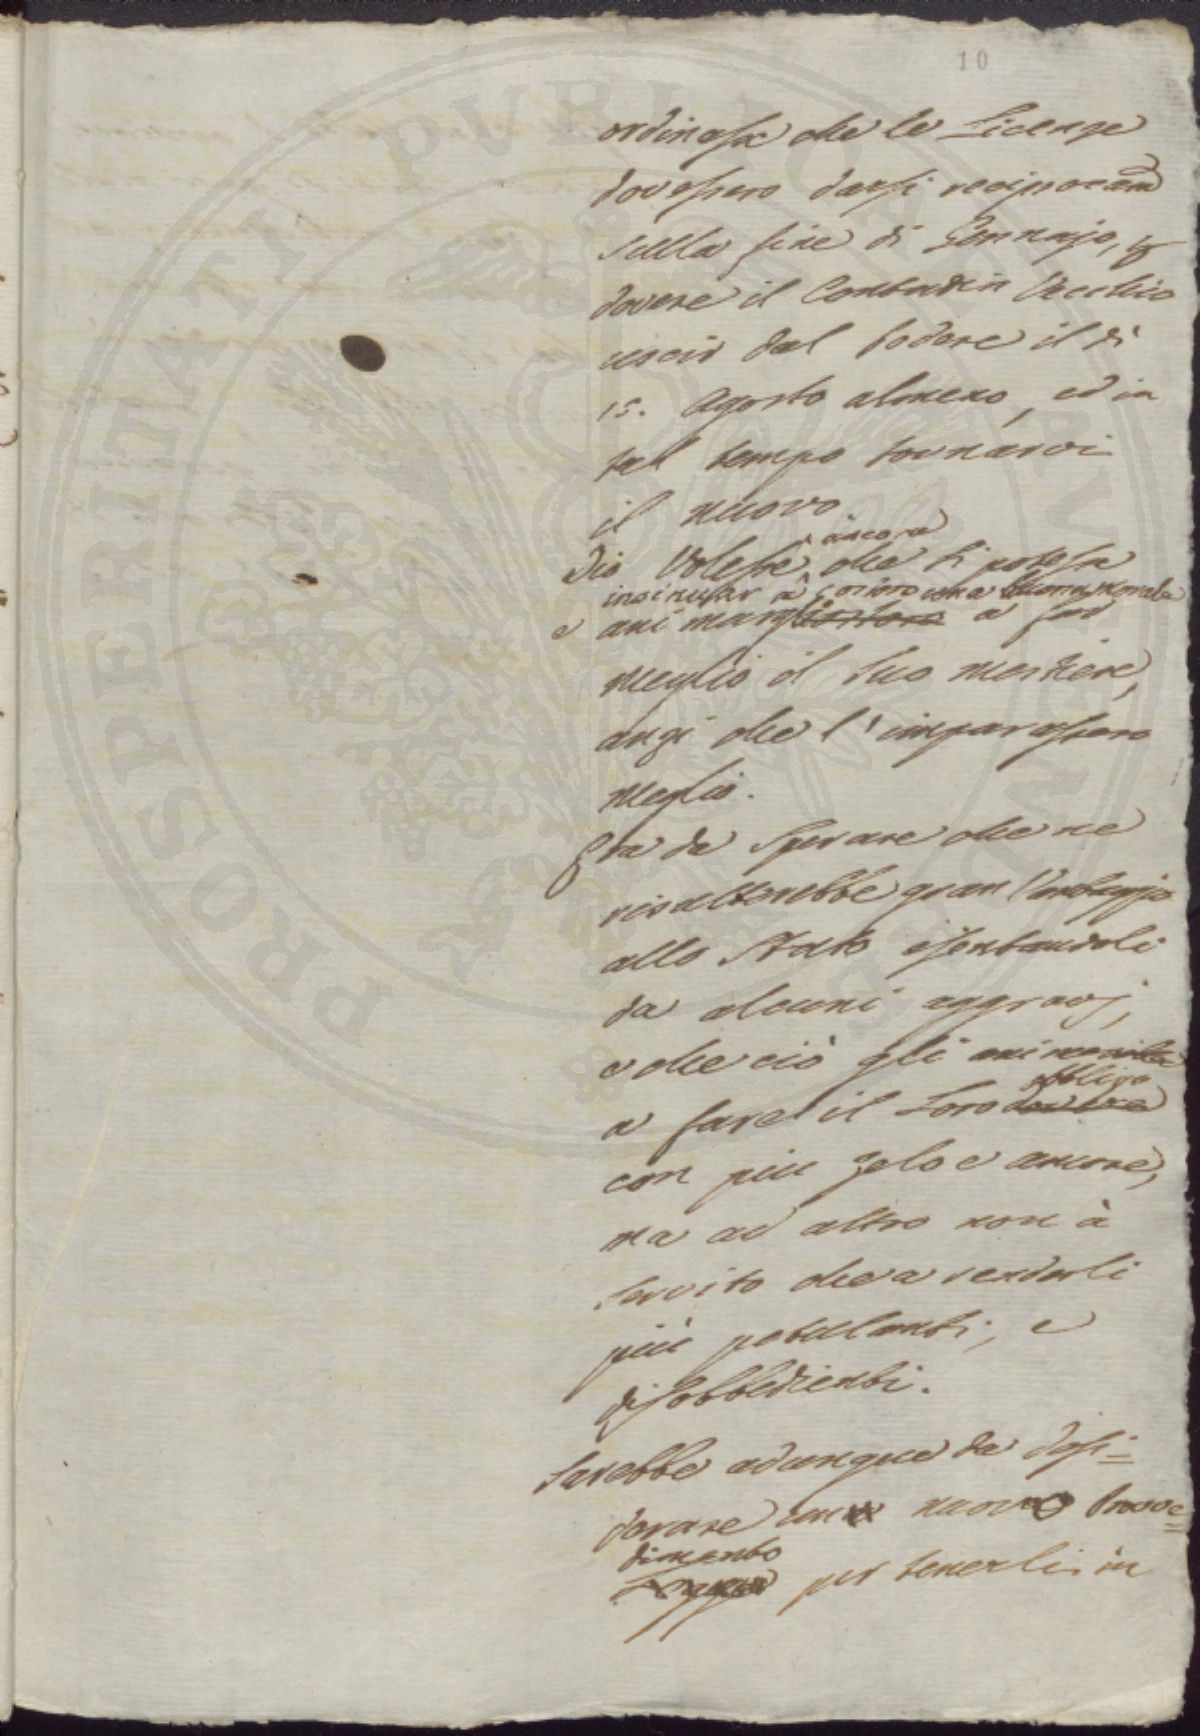 10
ordinasse che le Licenze
dovessero darsi reciprocam
sulla fine di Gennajo, e
dovere il Contadin Vecchio
uscir dal Podere il dì
15. Agosto almeno, ed in
tal tempo tornarvi
il nuovo
Dio Volesse, ancora che si potesse
insinuar a costoro una buona morale
e animargli a far
meglio il suo mestiere,
anzi che l'imparassero
meglio.
Era da sperare che ne
risulterebbe gran Vantaggio
allo Stato esentandoli
da alcuni aggravj,
e che ciò gli
a fare il Loro obbligo
con più zelo e amore,
ma ad altro non à
servito che a renderli
più petulanti, e
disobbedienti.
Sarebbe adunque da desi=
derare un nuovo Provve=
dimento
per tenerli in
PROSPERITATI PVBLICAE AVGENDAE